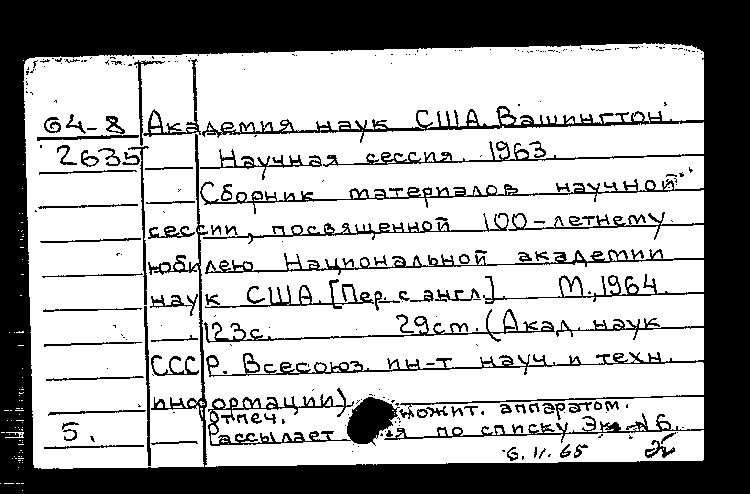 64-8 Академия наук США. Вашингтон.
2635 Научная сессия. 1963.
Сборник материалов научной
сессии, посвященной 100-летнему
юбилею Национальной академии
наук США. [Пер. с англ.]. М., 1964.
123с. 29см. (Акад. наук
СССР. Всесоюз. ин-т науч. и техн.
информации)
Отпеч. множит. аппаратом.
5. Рассылает я по списку Экз. N 6.
6.11.65